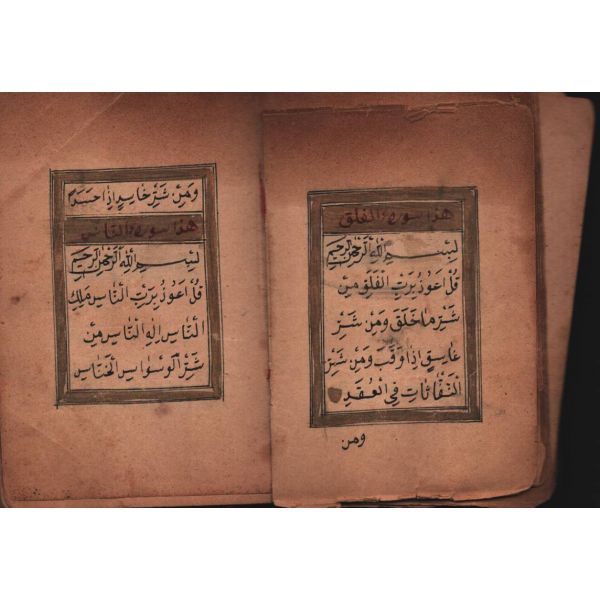 هذا سورة الفلق
بسم الله الرحمن الرحيم
قل اعوذ برب الفلق من
شر ما خلق ومن شر
غاسق اذا وقب ومن شر
النفاثات في العقد
ومن
ومن شر حاسد اذا حسد
هذا سورة الناس
بسم الله الرحمن الرحيم
قل اعوذ برب الناس ملك
الناس اله الناس من
شر الوسواس الخناس